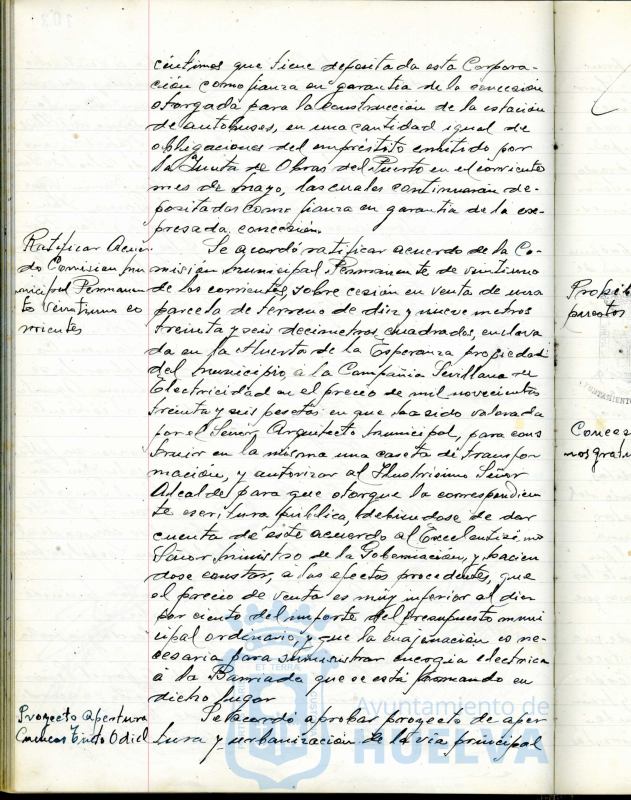 céntimos que tiene depositada esta Corpora-
ción como fianza en garantía de la concesión
otorgada para la construcción de la estación
de autobuses, en una cantidad igual de
obligaciones del empréstito emitido por
la Junta de Obras del Puerto en el corriente
mes de mayo, las cuales continuarán de-
positadas como fianza en garantía de la ex-
presada concesión.
Ratificar Acuer
do Comision mu
nicipal Permanen
te veintiuno co
rrientes
Se acordó ratificar acuerdo de la Co-
misión municipal Permanente de veintiuno
de los corrientes, sobre cesión en venta de una
parcela de terreno de diez y nueve metros
treinta y seis decimetros cuadrados, enclava
da en la Huerta de la Esperanza propiedad
del municipio, a la Compañia Sevillana de
Electricidad en el precio de mil novecientas
treinta y seis pesetas en que ha sido valorada
por el Señor Arquitecto municipal, para cons
truir en la misma una caseta de transfor
mación, y autorizar al Ilustrisimo Señor
Alcalde para que otorgue la correspondien
te escritura pública, debiendose de dar
cuenta de este acuerdo al Excelentisimo
Señor Ministro de la Gobernación, y hacien
dose constar, a los efectos procedentes, que
el precio de venta es muy inferior al diez
por ciento del importe del presupuesto muni
cipal ordinario, y que la enajenación es ne-
cesaria para suministrar energia electrica
a la Barriada que se está formando en
dicho lugar
Proyecto apertura
Cuencas Tinto Odiel
Se acordó aprobar proyecto de aper
tura y urbanización de la via principal
puestos
Conces
nos gratu
Ayuntamiento de
HUELVA